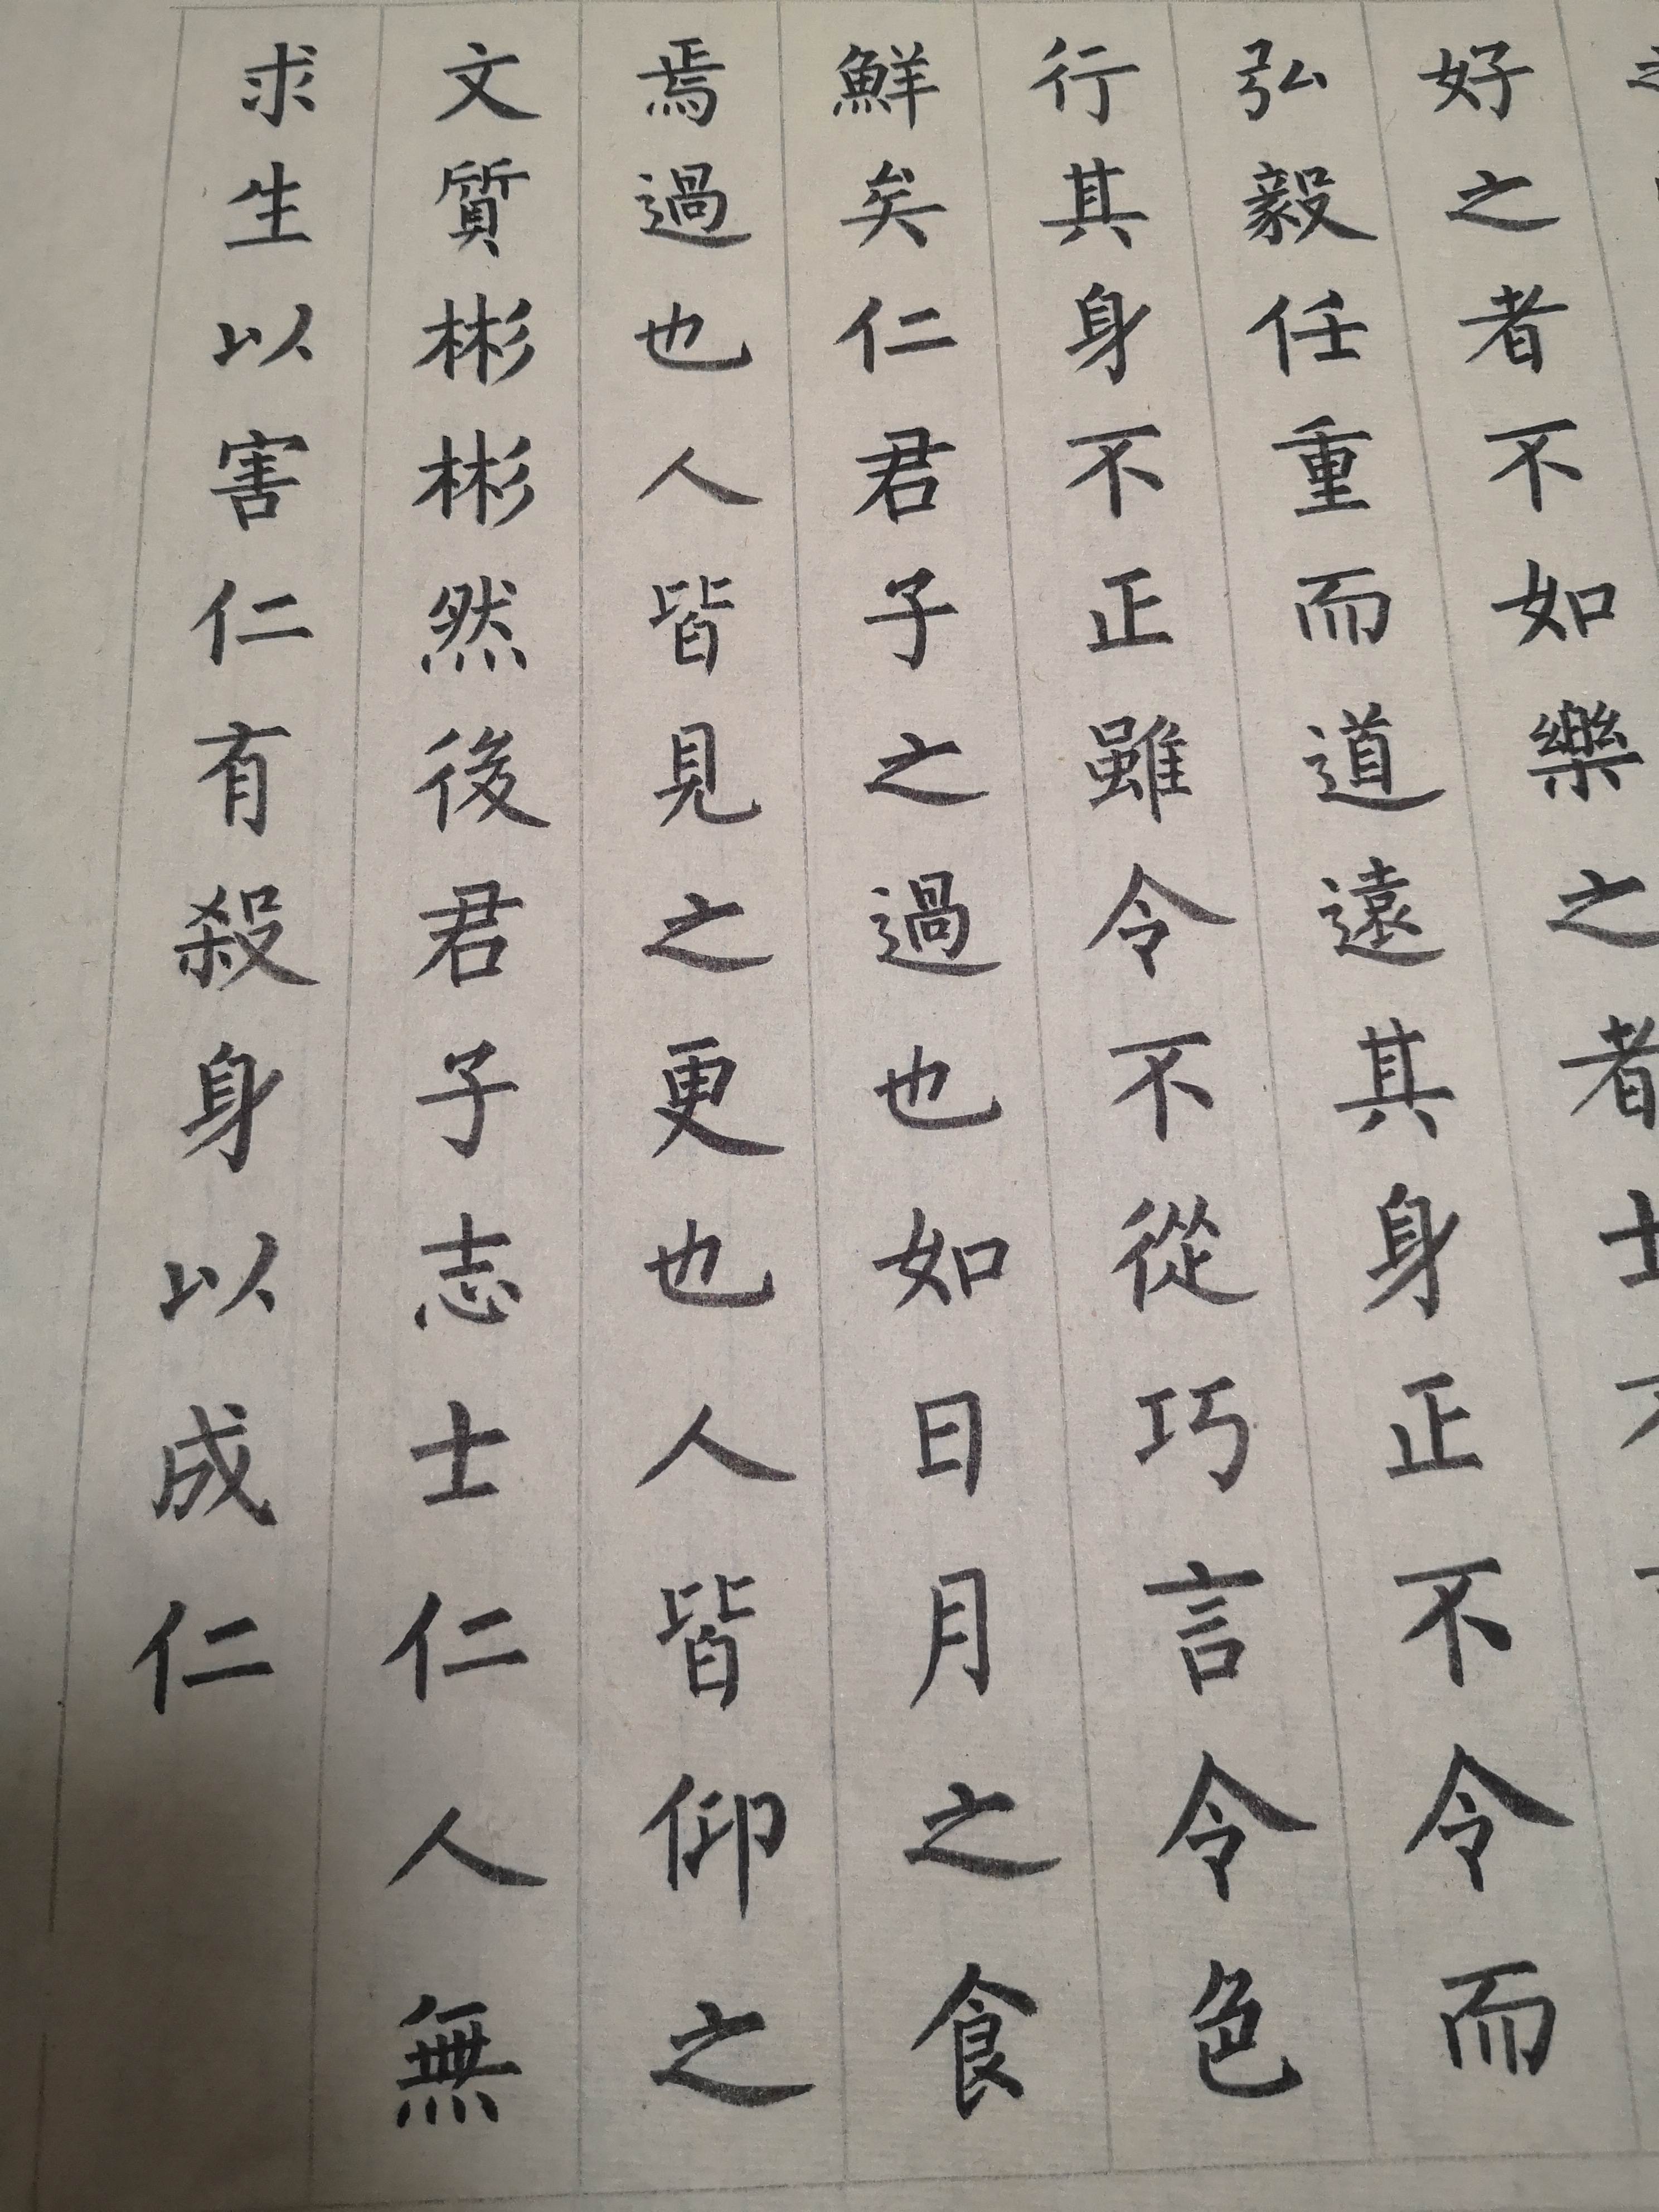 好之者不如樂之者士不
弘毅任重而道遠其身正不令而
行其身不正雖令不從巧言令色
鮮矣仁君子之過也如日月之食
焉過也人皆見之更也人皆仰之
文質彬彬然後君子志士仁人無
求生以害仁有殺身以成仁